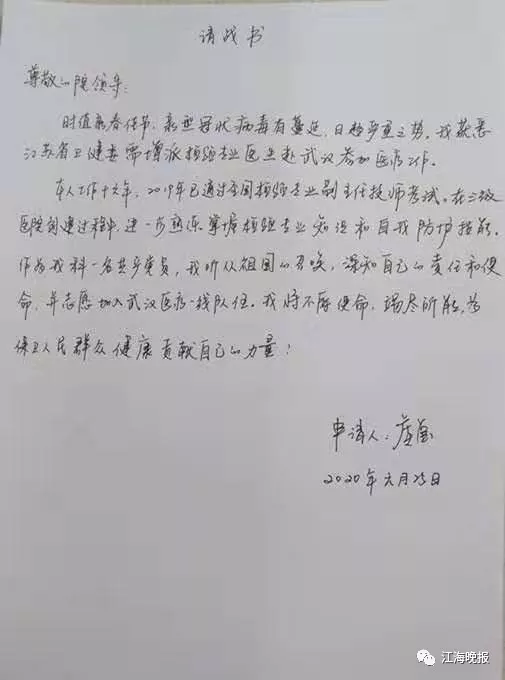 请战书
尊敬的院领导：
时值新春佳节，新型冠状病毒有蔓延、日趋严重之势，我获悉
江苏省卫健委需增派检验专业医生赴武汉参加医疗工作。
本人工作十六年，2019年已通过全国检验专业副主任技师考试。在三级
医院创建过程中，进一步熟练掌握检验专业知识和自我防护技能。
作为我科一名共产党员，我听从祖国的召唤，深知自己的责任和使
命，并志愿加入武汉医疗一线队伍。我将不辱使命，竭尽所能，为
保卫人民群众健康贡献自己的力量！
申请人：
2020年元月25日
江海晚报